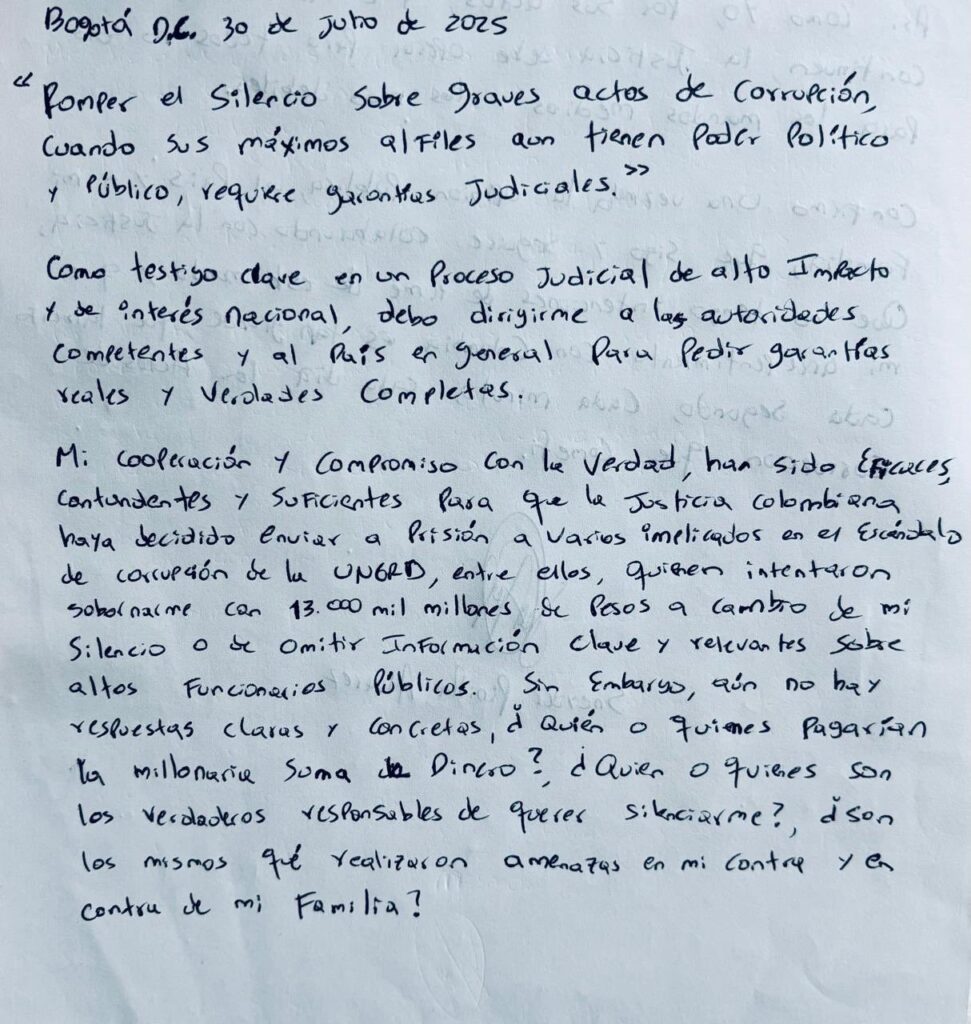 Bogotá D.C. 30 de Julio de 2025
"Romper el Silencio Sobre graves actos de Corrupción,
Cuando Sus máximos alfiles aun tienen Poder Político
y Público, requiere garantías Judiciales."
Como testigo clave en un Proceso Judicial de alto Impacto
y de interés nacional, debo dirigirme a las autoridades
Competentes y al País en general Para Pedir garantías
reales y Verdades Completas.
Mi cooperación y Compromiso Con la Verdad, han sido Eficaces,
Contundentes y Suficientes Para que la Justicia Colombiana
haya decidido Enviar a Prisión a Varios implicados en el Escándalo
de corrupción de la UNGRD, entre ellos, quienen intentaron
sobornarme con 13.000 mil millones de Pesos a cambio de mi
Silencio o de omitir Información Clave y relevantes Sobre
altos Funcionarios Públicos. Sin Embargo, aún no hay
respuestas claras y concretas, ¿Quién o quienes Pagarían
la millonaria Suma de Dinero?, ¿Quien o quienes son
los verdaderos responsables de querer Silenciarme?, ¿son
los mismos qué realizaron amenazas en mi Contra y en
contra de mi Familia?